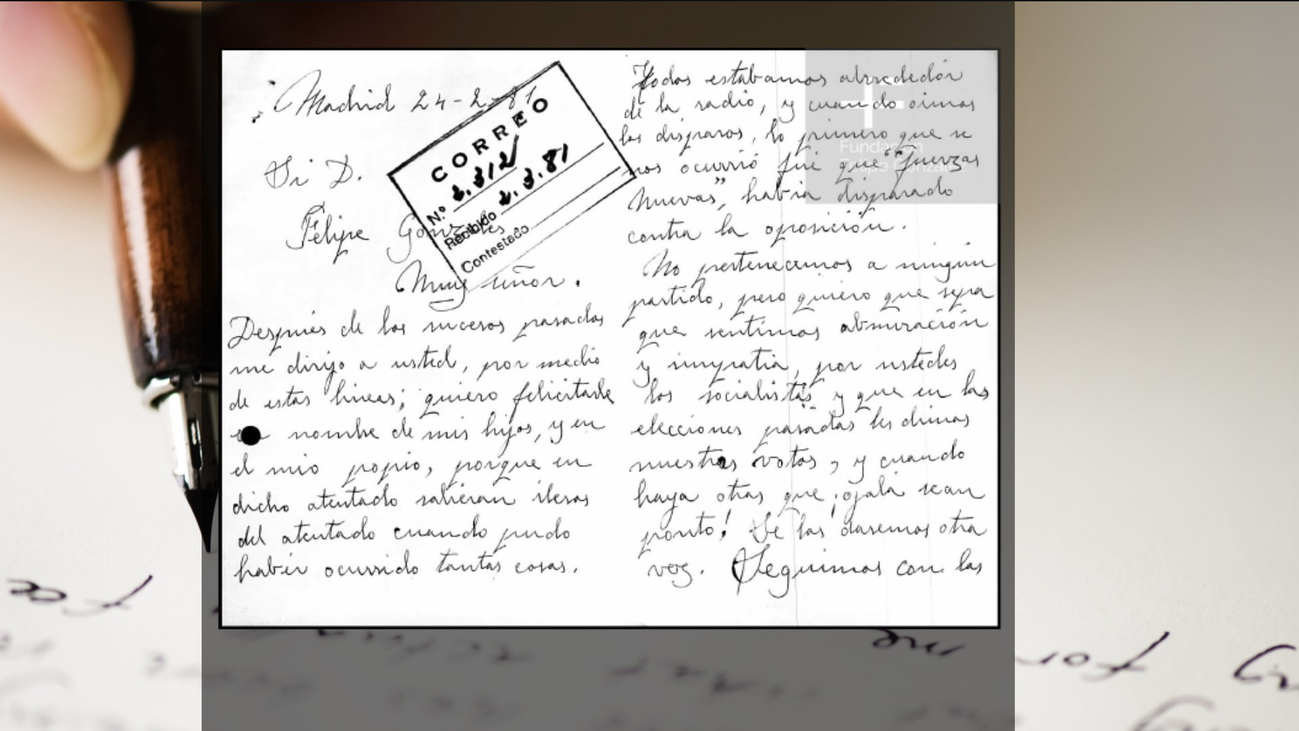 Madrid 24-2-81
CORREO
Nº 2.312
Recibido 2.3.81
Contestado
Sr D.
Felipe Gonzales
Muy señor.
Después de los sucesos pasados
me dirijo a usted, por medio
de estas lineas; quiero felicitarle
en nombre de mis hijos, y en
el mio propio, porque en
dicho atentado salieran ilesos
del atentado cuando pudo
haber ocurrido tantas cosas.
Todos estábamos alrededor
de la radio, y cuando oimos
los disparos, lo primero que se
nos ocurrió fué que "fuerzas
nuevas", habia disparado
contra la oposición.
No pertenecemos a ningún
partido, pero quiero que sepa
que sentimos admiración
y simpatia, por ustedes
los socialistas y que en las
elecciones pasadas les dimos
nuestros votos, y cuando
haya otras que ¡ojalá sean
pronto! Se los daremos otra
vez. Seguimos con las
Fundación
Felipe González
me
for